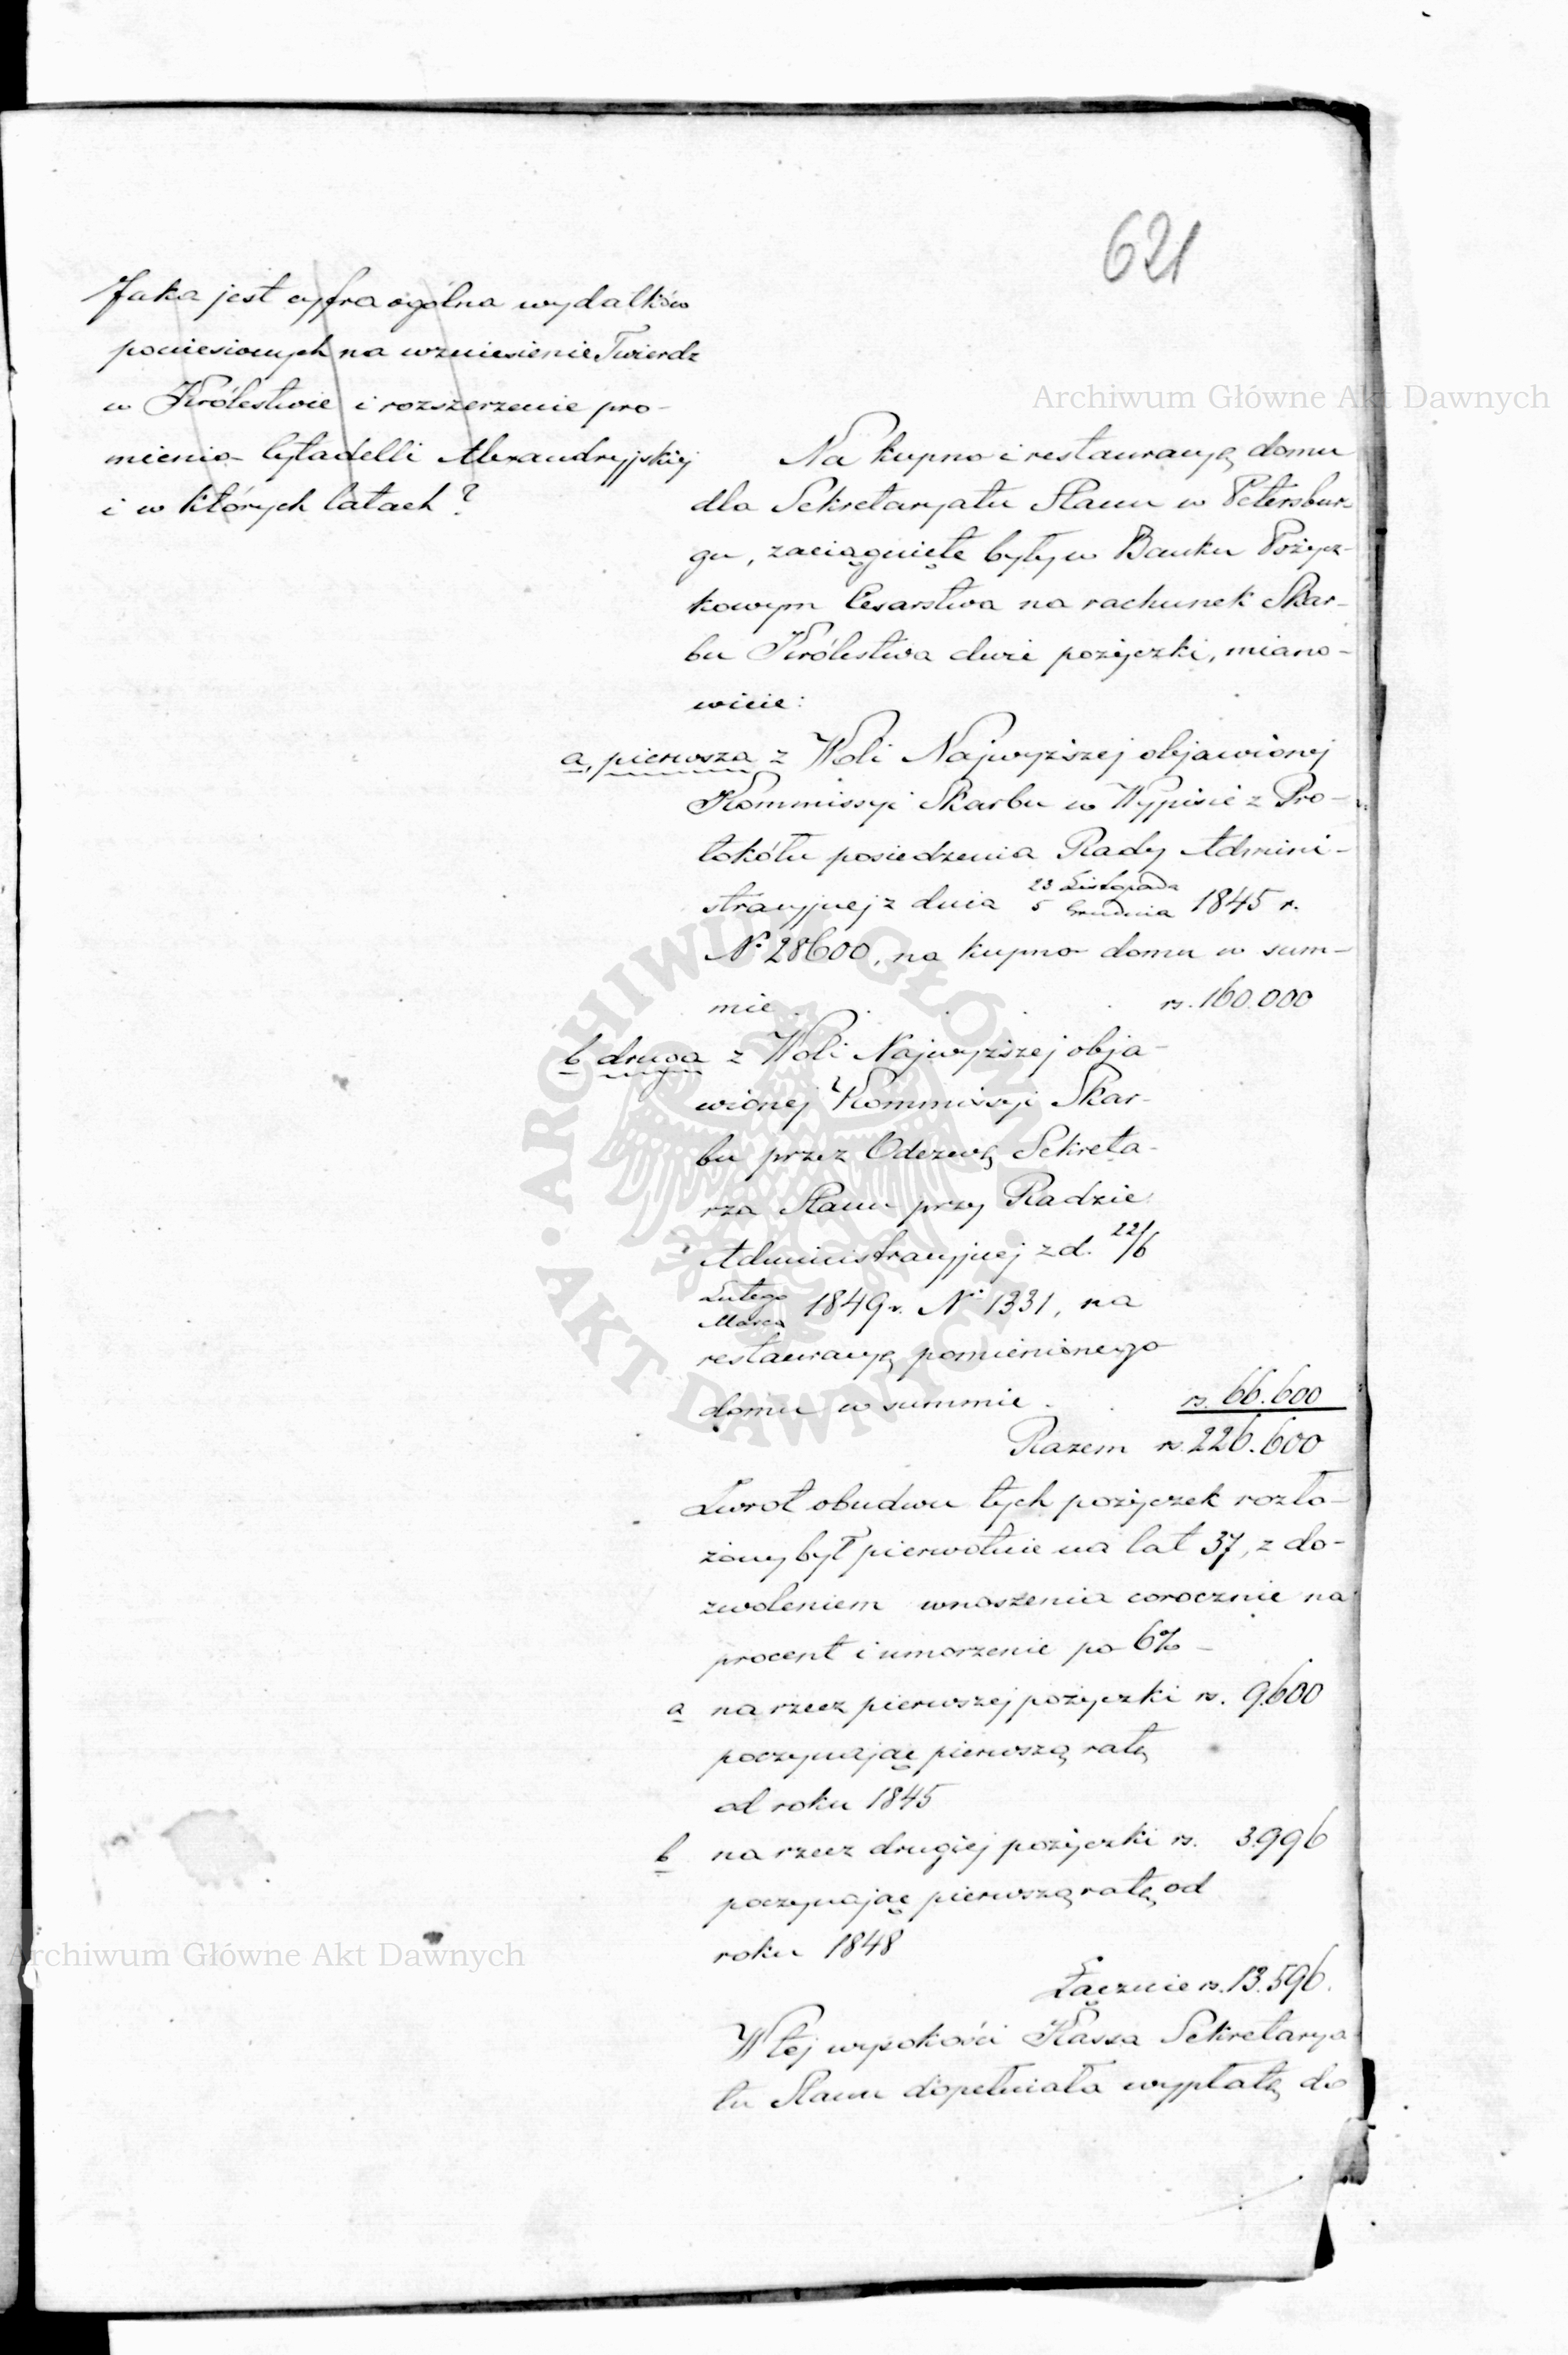 621
Jaka jest cyfra ogólna wydatków
poniesionych na wzniesienie Twierdz
w Królestwie i rozszerzenie pro-
mienia Cytadelli Alexandryjskiej
i w których latach?
Na kupno i restauracyą domu
dla Sekretaryatu Stanu w Petersbur-
gu, zaciągnięte były w Banku Pożycz-
kowym Cesarstwa na rachunek Skar-
bu Królestwa dwie pożyczki, miano-
wicie:
a, pierwsza z Woli Najwyższej objawionej
Kommissyi Skarbu w Wypisie z Pro-
tokółu posiedzenia Rady Admini-
stracyjnej z dnia 23 Listopada / 5 Grudnia 1845 r.
No 28600, na kupno domu w sum-
mie . . . . rs. 160.000
b druga z Woli Najwyższej obja-
wionej Kommissyi Skar-
bu przez Odezwę Sekreta-
rza Stanu przy Radzie
Administracyjnej z d. 22/6
Lutego / Marca 1849 r. No 1331, na
restauracyą pomienionego
domu w summie . . rs. 66.600
Razem rs. 226.600
Zwrot obudwu tych pożyczek rozło-
żony był pierwotnie na lat 37, z do-
zwoleniem wnoszenia corocznie na
procent i umorzenie po 6% -
a na rzecz pierwszej pożyczki rs. 9.600
poczynając pierwszą ratę
od roku 1845
b na rzecz drugiej pożyczki rs. 3.996
poczynając pierwszą ratę od
roku 1848
Łącznie rs. 13.596.
W tej wysokości Kassa Sekretarya-
tu Stanu dopełniała wypłatę do
Archiwum Główne Akt Dawnych
ARCHIWUM GŁÓWNE AKT DAWNYCH
Archiwum Główne Akt Dawnych